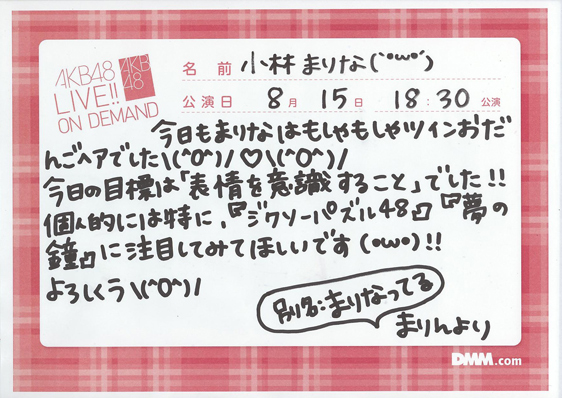 AKB48
LIVE!!
ON DEMAND
AKB
48
名 前 小林まりな(`•ω•´)
公演日 8月 15日 18:30 公演
今日もまりなはもしゃもしゃツインおだ
んごヘアでした\(^O^)/♡\(^O^)/
今日の目標は「表情を意識すること」でした!!
個人的には特に、『ジグソーパズル48』『夢の
鐘』に注目してみてほしいです(•ω•)!!
よろしくう\(^O^)/
別名:まりなってる
まりんより
DMM.com